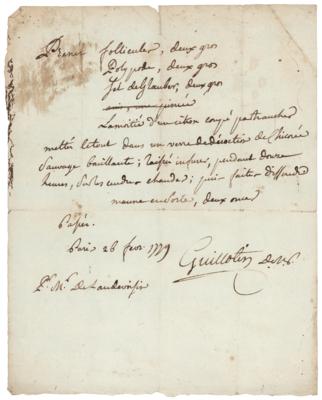 Prenez follicules, deux gros
Polypode, deux gros
Sel de Glauber, deux gros
La moitié d'un citron coupé par tranches
mettés le tout dans un verre de décoction de Chicorée
Sauvage bouillante; laissés infuser, pendant douze
heures, sur les cendres chaudes; puis faites dissoudre
manne en sorte, deux onces
Passés.
Paris 26 fevr. 1779
Guillotin D.M.P.
Pr. Mr. De